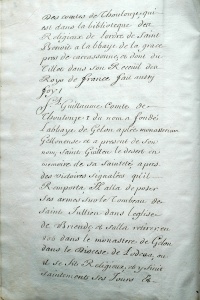 Des comtes de Thoulouze, qui
est dans la bibliotheque des
Religieux de Lordre de Saint
Benoit a labbaye de la grace
pres de carcassonne, et dont du
Tillet dans son Recueil des
Roys de france fait aussy
foy.
St Guillaume Comte de
Thoulouze 1 du nom a fondé
labbaye de Gelon apres monasterium
Gellonense et a present de son
nom, Saint Guillen le desert en
memoire de sa sainteté, apres
des victoires signalées quil
Remporta Il alla deposer
ses armes sur le Tombeau de
Saint Jullien dans leglise
de Brioude et salla retirer en
dans le monastere de Gelon
dans le Diocese de Lodeve, ou
il se fit Religieux, et y finit
saintement ses Jours